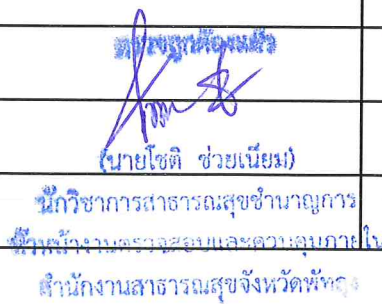 ตรวจถูกต้องแล้ว
(นายโชติ ช่วยเนียม)
นักวิชาการสาธารณสุขชำนาญการ
หัวหน้างานตรวจสอบและควบคุมภายใน
สำนักงานสาธารณสุขจังหวัดพัทลุง